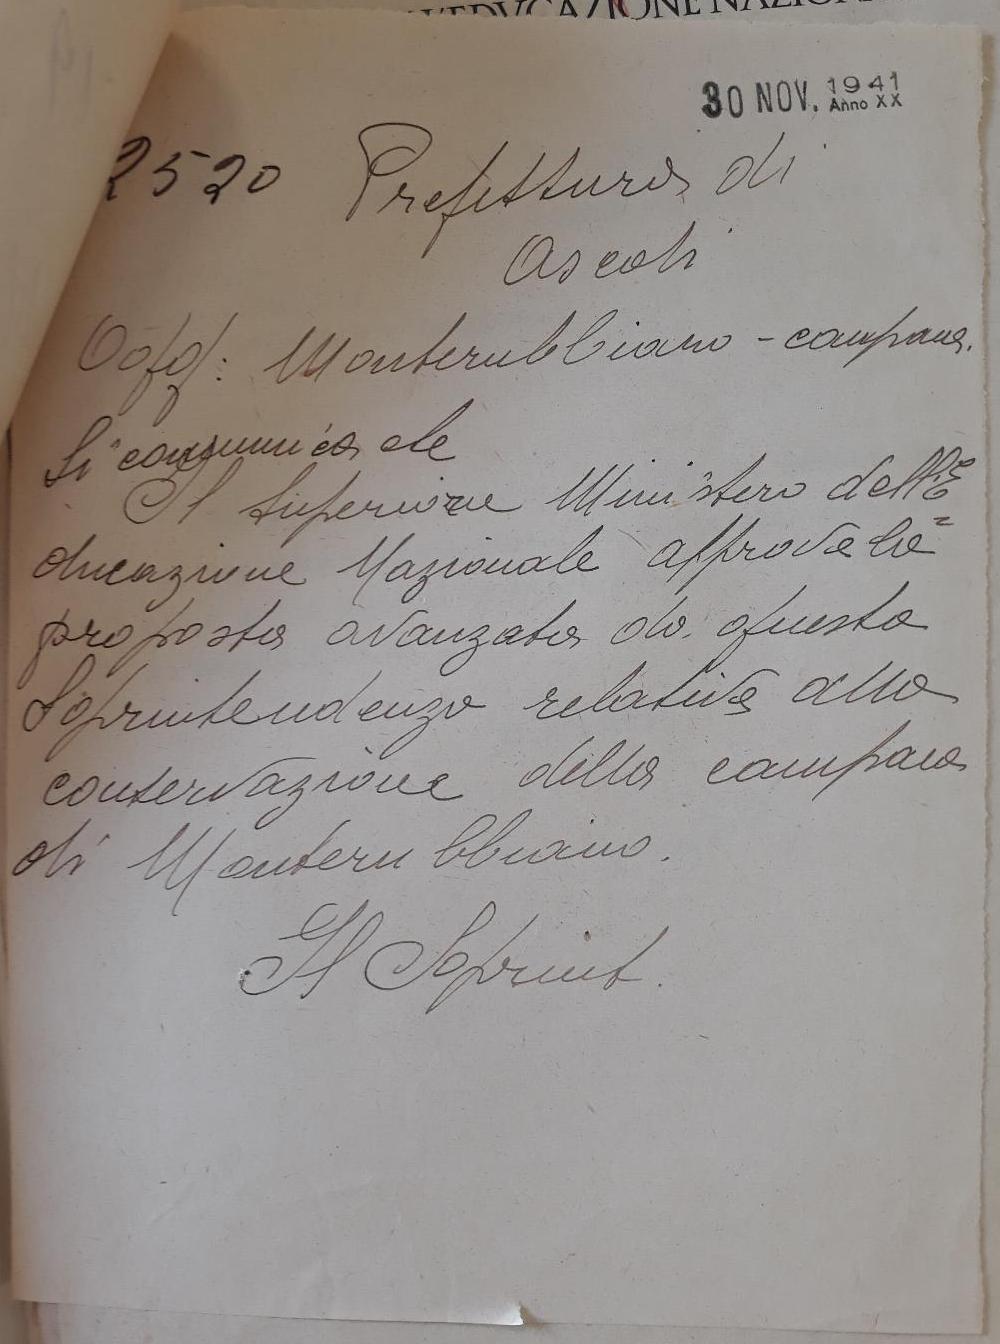 L'EDVCAZIONE NAZION
30 NOV. 1941
Anno XX
2520 Prefettura di
Ascoli
Ogg: Monterubbiano - campana.
Si comunica che
Il Superiore Ministero dell'E=
ducazione Nazionale approva la
proposta avanzata da questa
Soprintendenza relativa alla
conservazione della campana
di Monterubbiano.
Il Soprint.